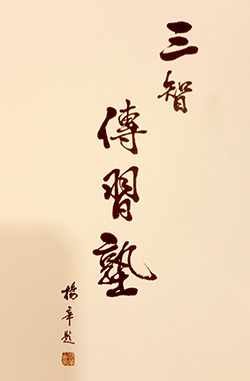 三智
傳習塾
楊辛題